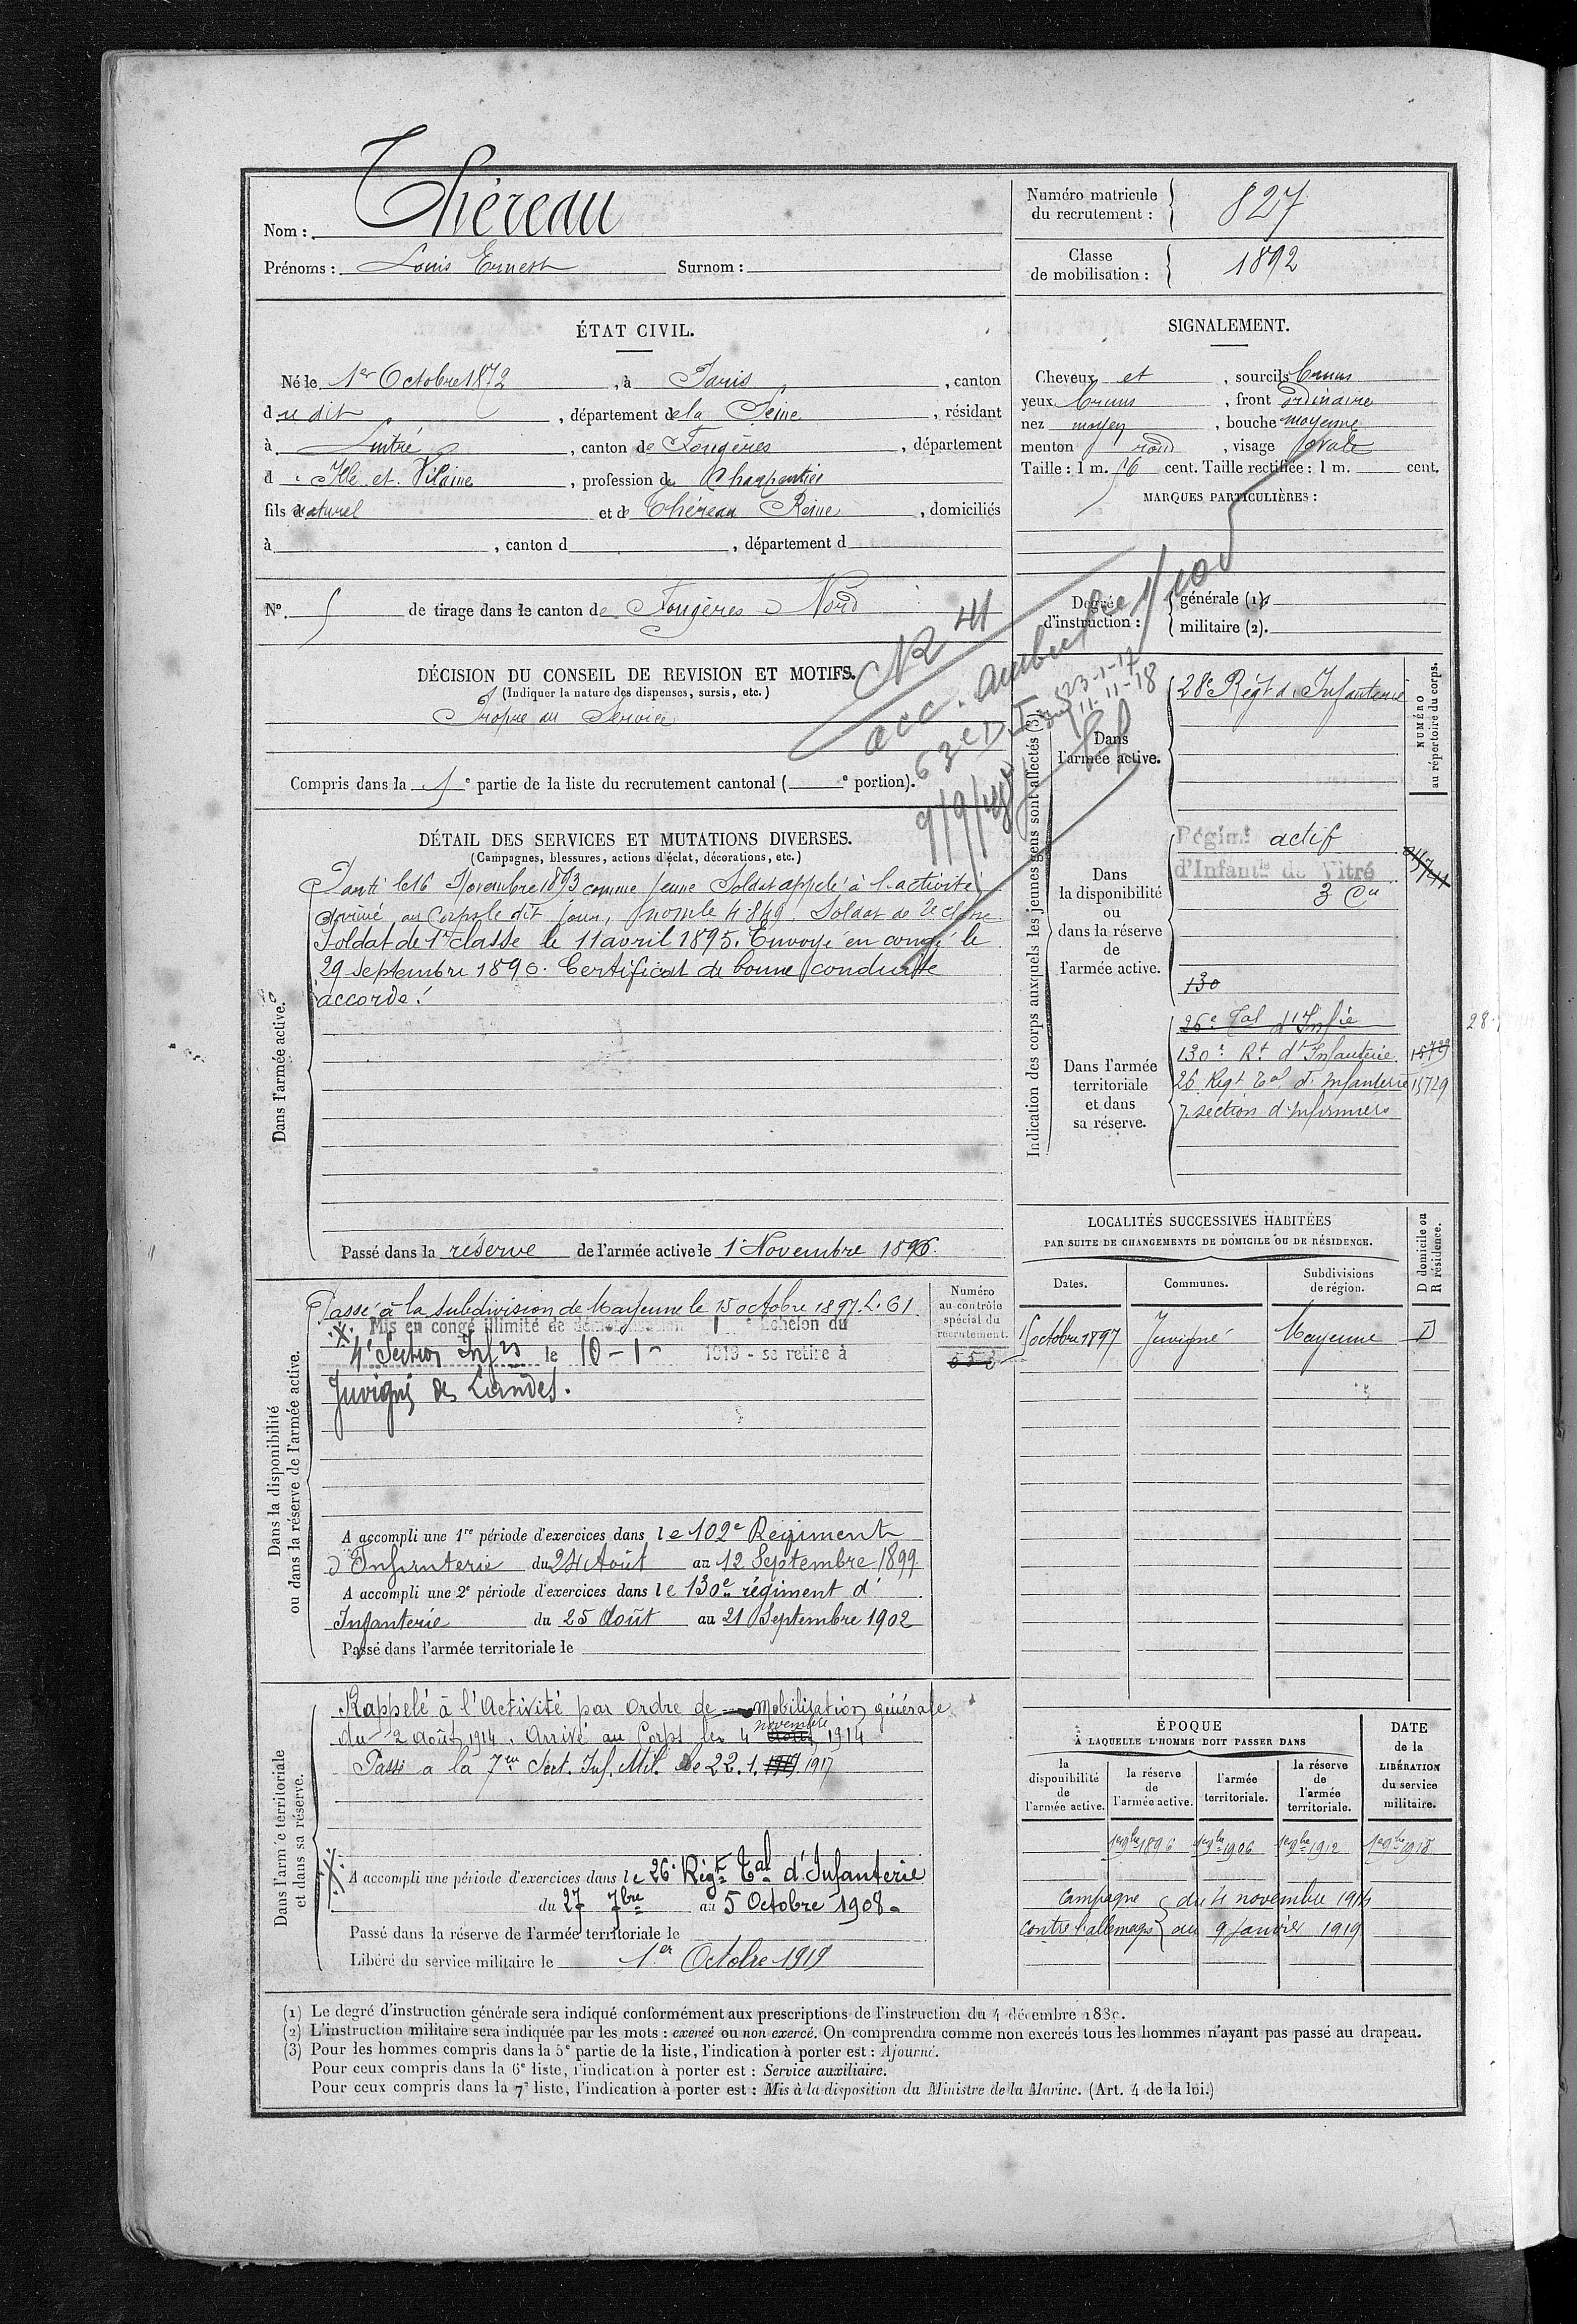 Nom : Théreau
Prénoms : Louis Ernest Surnom :
Numéro matricule
du recrutement : 827
Classe
de mobilisation : 1892
ÉTAT CIVIL.
Né le 1er Octobre 1872, à Paris, canton
du dit, département de la Seine, résidant
à, canton de Fougères, département
d'Ille et Vilaine, profession de Charpentier
fils naturel et de Théreau Reine, domiciliés
à, canton d, département d
SIGNALEMENT.
Cheveux et, sourcils bruns
yeux bruns, front ordinaire
nez moyen, bouche moyenne
menton rond, visage ovale
Taille : 1 m. 56 cent. Taille rectifiée : 1 m. cent.
MARQUES PARTICULIÈRES :
N° 5 de tirage dans le canton de Fougères Nord
Degré
d'instruction :
générale (1).
militaire (2).
DÉCISION DU CONSEIL DE REVISION ET MOTIFS.
(Indiquer la nature des dispenses, sursis, etc.)
Propre au Service
Compris dans la 1e partie de la liste du recrutement cantonal ( e portion).
63e D.I. 23-1-17
11-11-18
DÉTAIL DES SERVICES ET MUTATIONS DIVERSES.
(Campagnes, blessures, actions d'éclat, décorations, etc.)
Dans l'armée active.
Parti le 16 Novembre 1893 comme jeune Soldat appelé à l'activité
Arrivé au Corps le dit jour, Soldat de 2e classe
Soldat de 1re classe le 11 avril 1895. Envoyé en congé le
29 septembre 1896. Certificat de bonne conduite
accordé.
Passé dans la réserve de l'armée active le 1 Novembre 1896.
Indication des corps auxquels les jeunes gens sont affectés (3).
NUMÉRO
au répertoire du corps.
Dans
l'armée active.
28e Régt d'Infanterie
Dans
la disponibilité
ou
dans la réserve
de
l'armée active.
Régimt actif
d'Infantie de Vitré
3 Cie
130
Dans l'armée
territoriale
et dans
sa réserve.
26e Tal d'Infie
130e Rt d'Infanterie 15729
26 Regt Tal d'Infanterie 15729
7. section d'Infirmiers
LOCALITÉS SUCCESSIVES HABITÉES
PAR SUITE DE CHANGEMENTS DE DOMICILE OU DE RÉSIDENCE.
D domicile ou
R résidence.
Dates. Communes. Subdivisions
de région.
15 octobre 1897 Juvigné Mayenne D
Dans la disponibilité
ou dans la réserve de l'armée active.
Numéro
au contrôle
spécial du
recrutement.
Passé à la subdivision de Mayenne le 15 octobre 1897. L. 61
Mis en congé illimité de démobilisation 1e Echelon du
4e Section Infrs le 10-1- 1919 - se retire à
Juvigné des Landes.
A accompli une 1re période d'exercices dans le 102e Régiment
d'Infanterie du 24 Août au 12 Septembre 1899
A accompli une 2e période d'exercices dans le 130e régiment d'
Infanterie du 25 Août au 21 Septembre 1902
Passé dans l'armée territoriale le
Dans l'armée territoriale
et dans sa réserve.
Rappelé à l'Activité par ordre de mobilisation générale
du 2 août 1914. Arrivé au Corps le 4 novembre 1914
Passé à la 7me Sect. Inf. Mil. le 22.1.1917
A accompli une période d'exercices dans le 26e Régt Tal d'Infanterie
du 27 7bre au 5 Octobre 1908
Passé dans la réserve de l'armée territoriale le
Libéré du service militaire le 1er Octobre 1919
ÉPOQUE
À LAQUELLE L'HOMME DOIT PASSER DANS
DATE
de la
LIBÉRATION
du service
militaire.
la
disponibilité
de
l'armée active.
la réserve
de
l'armée active.
l'armée
territoriale.
la réserve
de
l'armée
territoriale.
1er 9bre 1896 1er 9bre 1906 1er 9bre 1912 1er 9bre 1918
Campagne du 4 novembre 1914
contre l'allemagne au 9 janvier 1919
(1) Le degré d'instruction générale sera indiqué conformément aux prescriptions de l'instruction du 4 décembre 1889.
(2) L'instruction militaire sera indiquée par les mots : exercé ou non exercé. On comprendra comme non exercés tous les hommes n'ayant pas passé au drapeau.
(3) Pour les hommes compris dans la 5e partie de la liste, l'indication à porter est : Ajourné.
Pour ceux compris dans la 6e liste, l'indication à porter est : Service auxiliaire.
Pour ceux compris dans la 7e liste, l'indication à porter est : Mis à la disposition du Ministre de la Marine. (Art. 4 de la loi.)